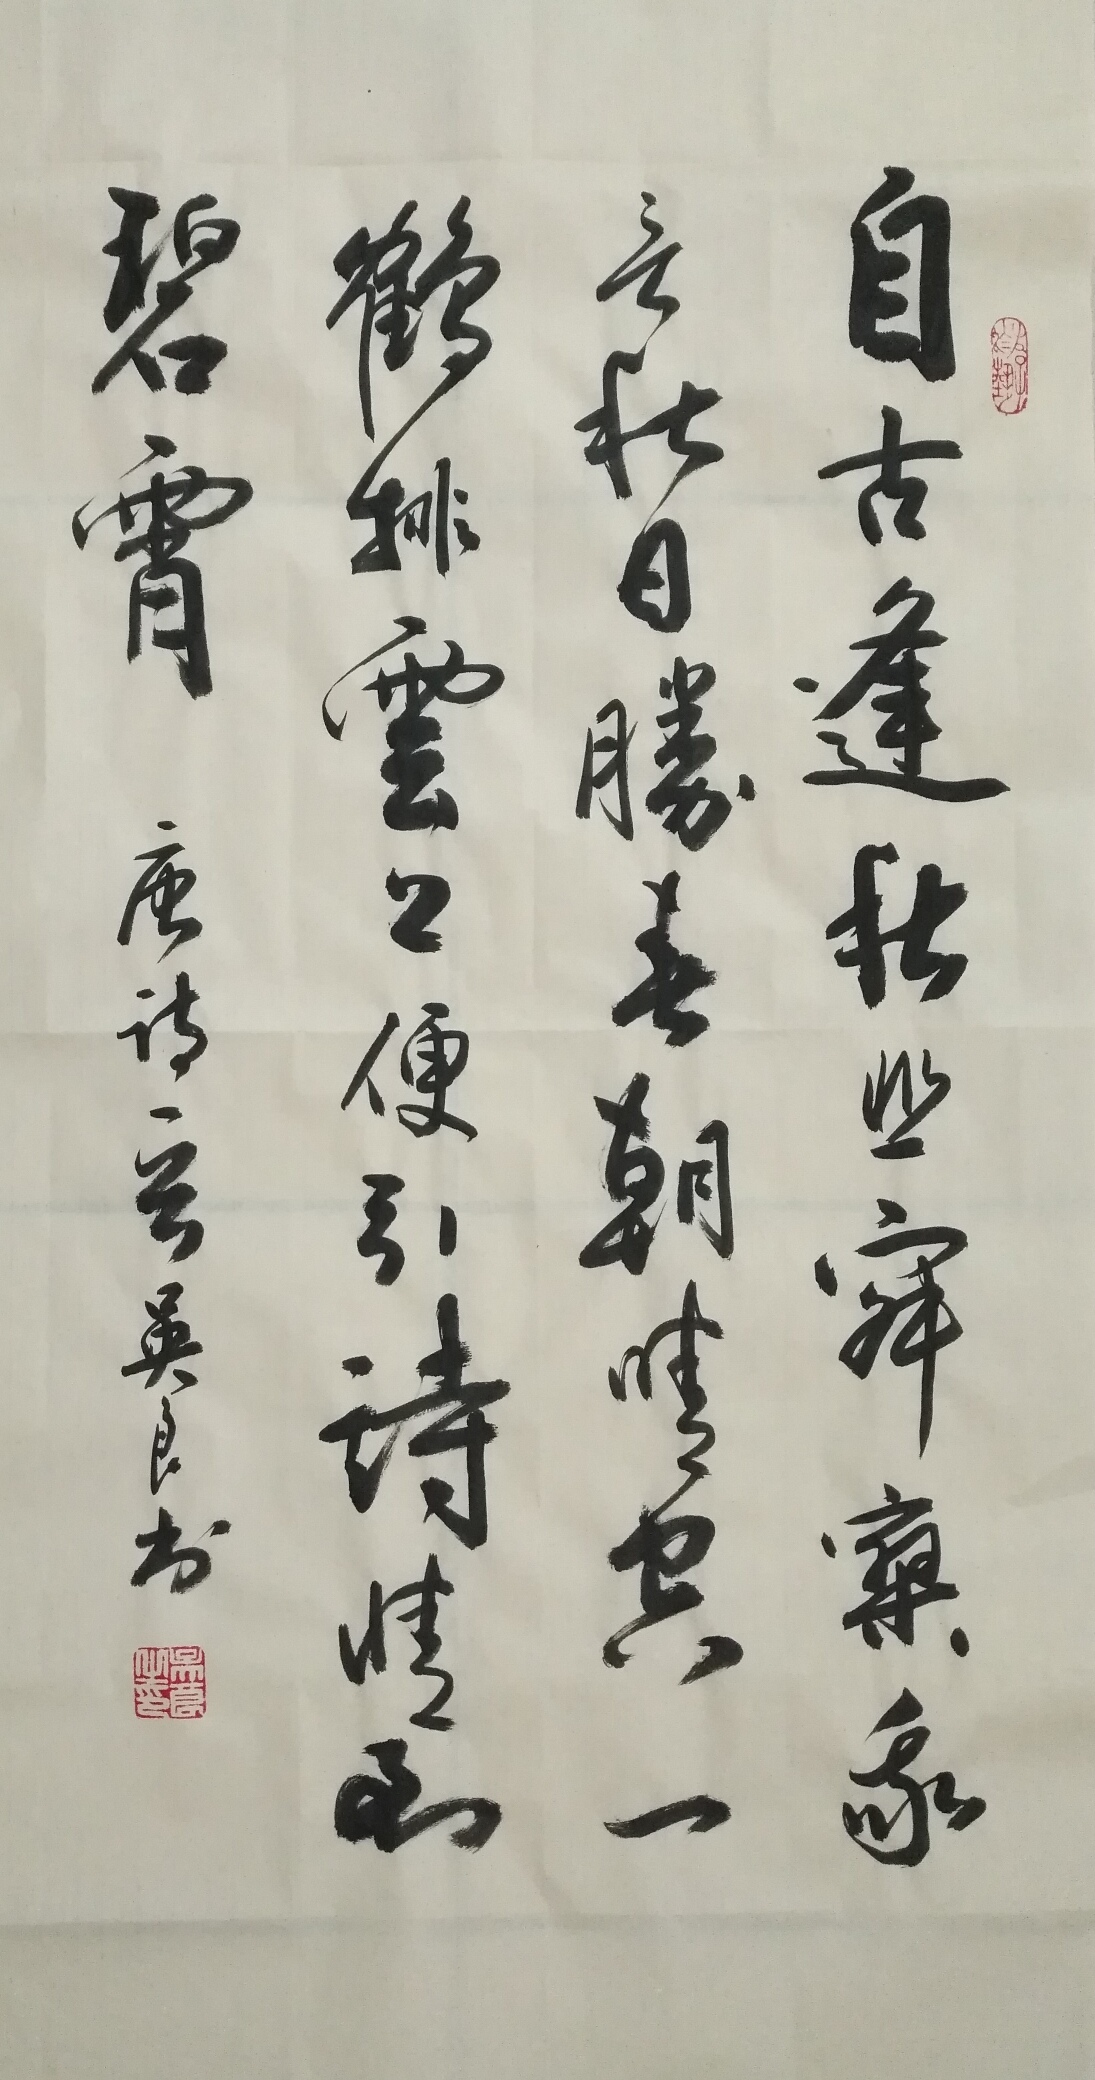 自古逢秋悲寂寥我
言秋日勝春朝晴空一
鶴排雲上便引詩情到
碧霄
唐诗一首吴良书